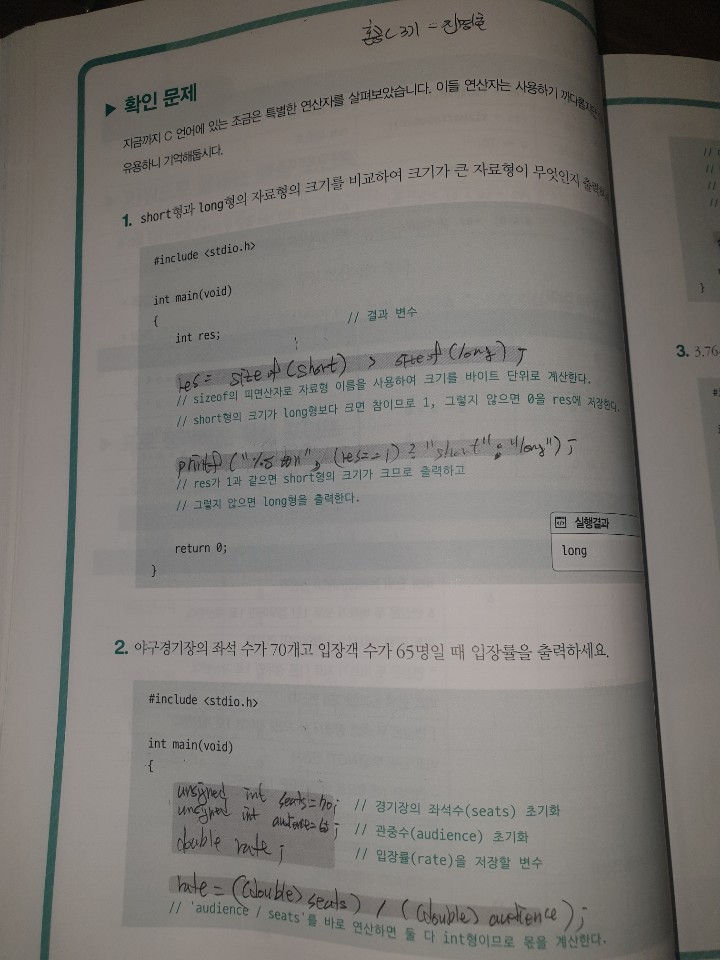 혼공C 3기 -
▶ 확인 문제
지금까지 C 언어에 있는 조금은 특별한 연산자를 살펴보았습니다. 이들 연산자는 사용하기
유용하니 기억해둡시다.
1. short형과 long형의 자료형의 크기를 비교하여 크기가 큰 자료형이 무엇인지
#include <stdio.h>
int main(void)
{
int res; // 결과 변수
res = sizeof(short) > sizeof(long);
// sizeof의 피연산자로 자료형 이름을 사용하여 크기를 바이트 단위로 계산한다.
// short형의 크기가 long형보다 크면 참이므로 1, 그렇지 않으면 0을 res에 저장한다.
printf (" ", (res==1) ? "short" : "long");
// res가 1과 같으면 short형의 크기가 크므로 출력하고
// 그렇지 않으면 long형을 출력한다.
return 0;
}
실행결과
long
2. 야구경기장의 좌석 수가 70개고 입장객 수가 65명일 때 입장률을 출력하세요.
#include <stdio.h>
int main(void)
{
unsigned int seats=70; // 경기장의 좌석수(seats) 초기화
unsigned int audience=65; // 관중수(audience) 초기화
double rate; // 입장률(rate)을 저장할 변수
rate = ((double) seats) / ((double) audience);
// 'audience / seats'를 바로 연산하면 둘 다 int형이므로 몫을 계산한다.
//
//
//
//
}
3. 3.76